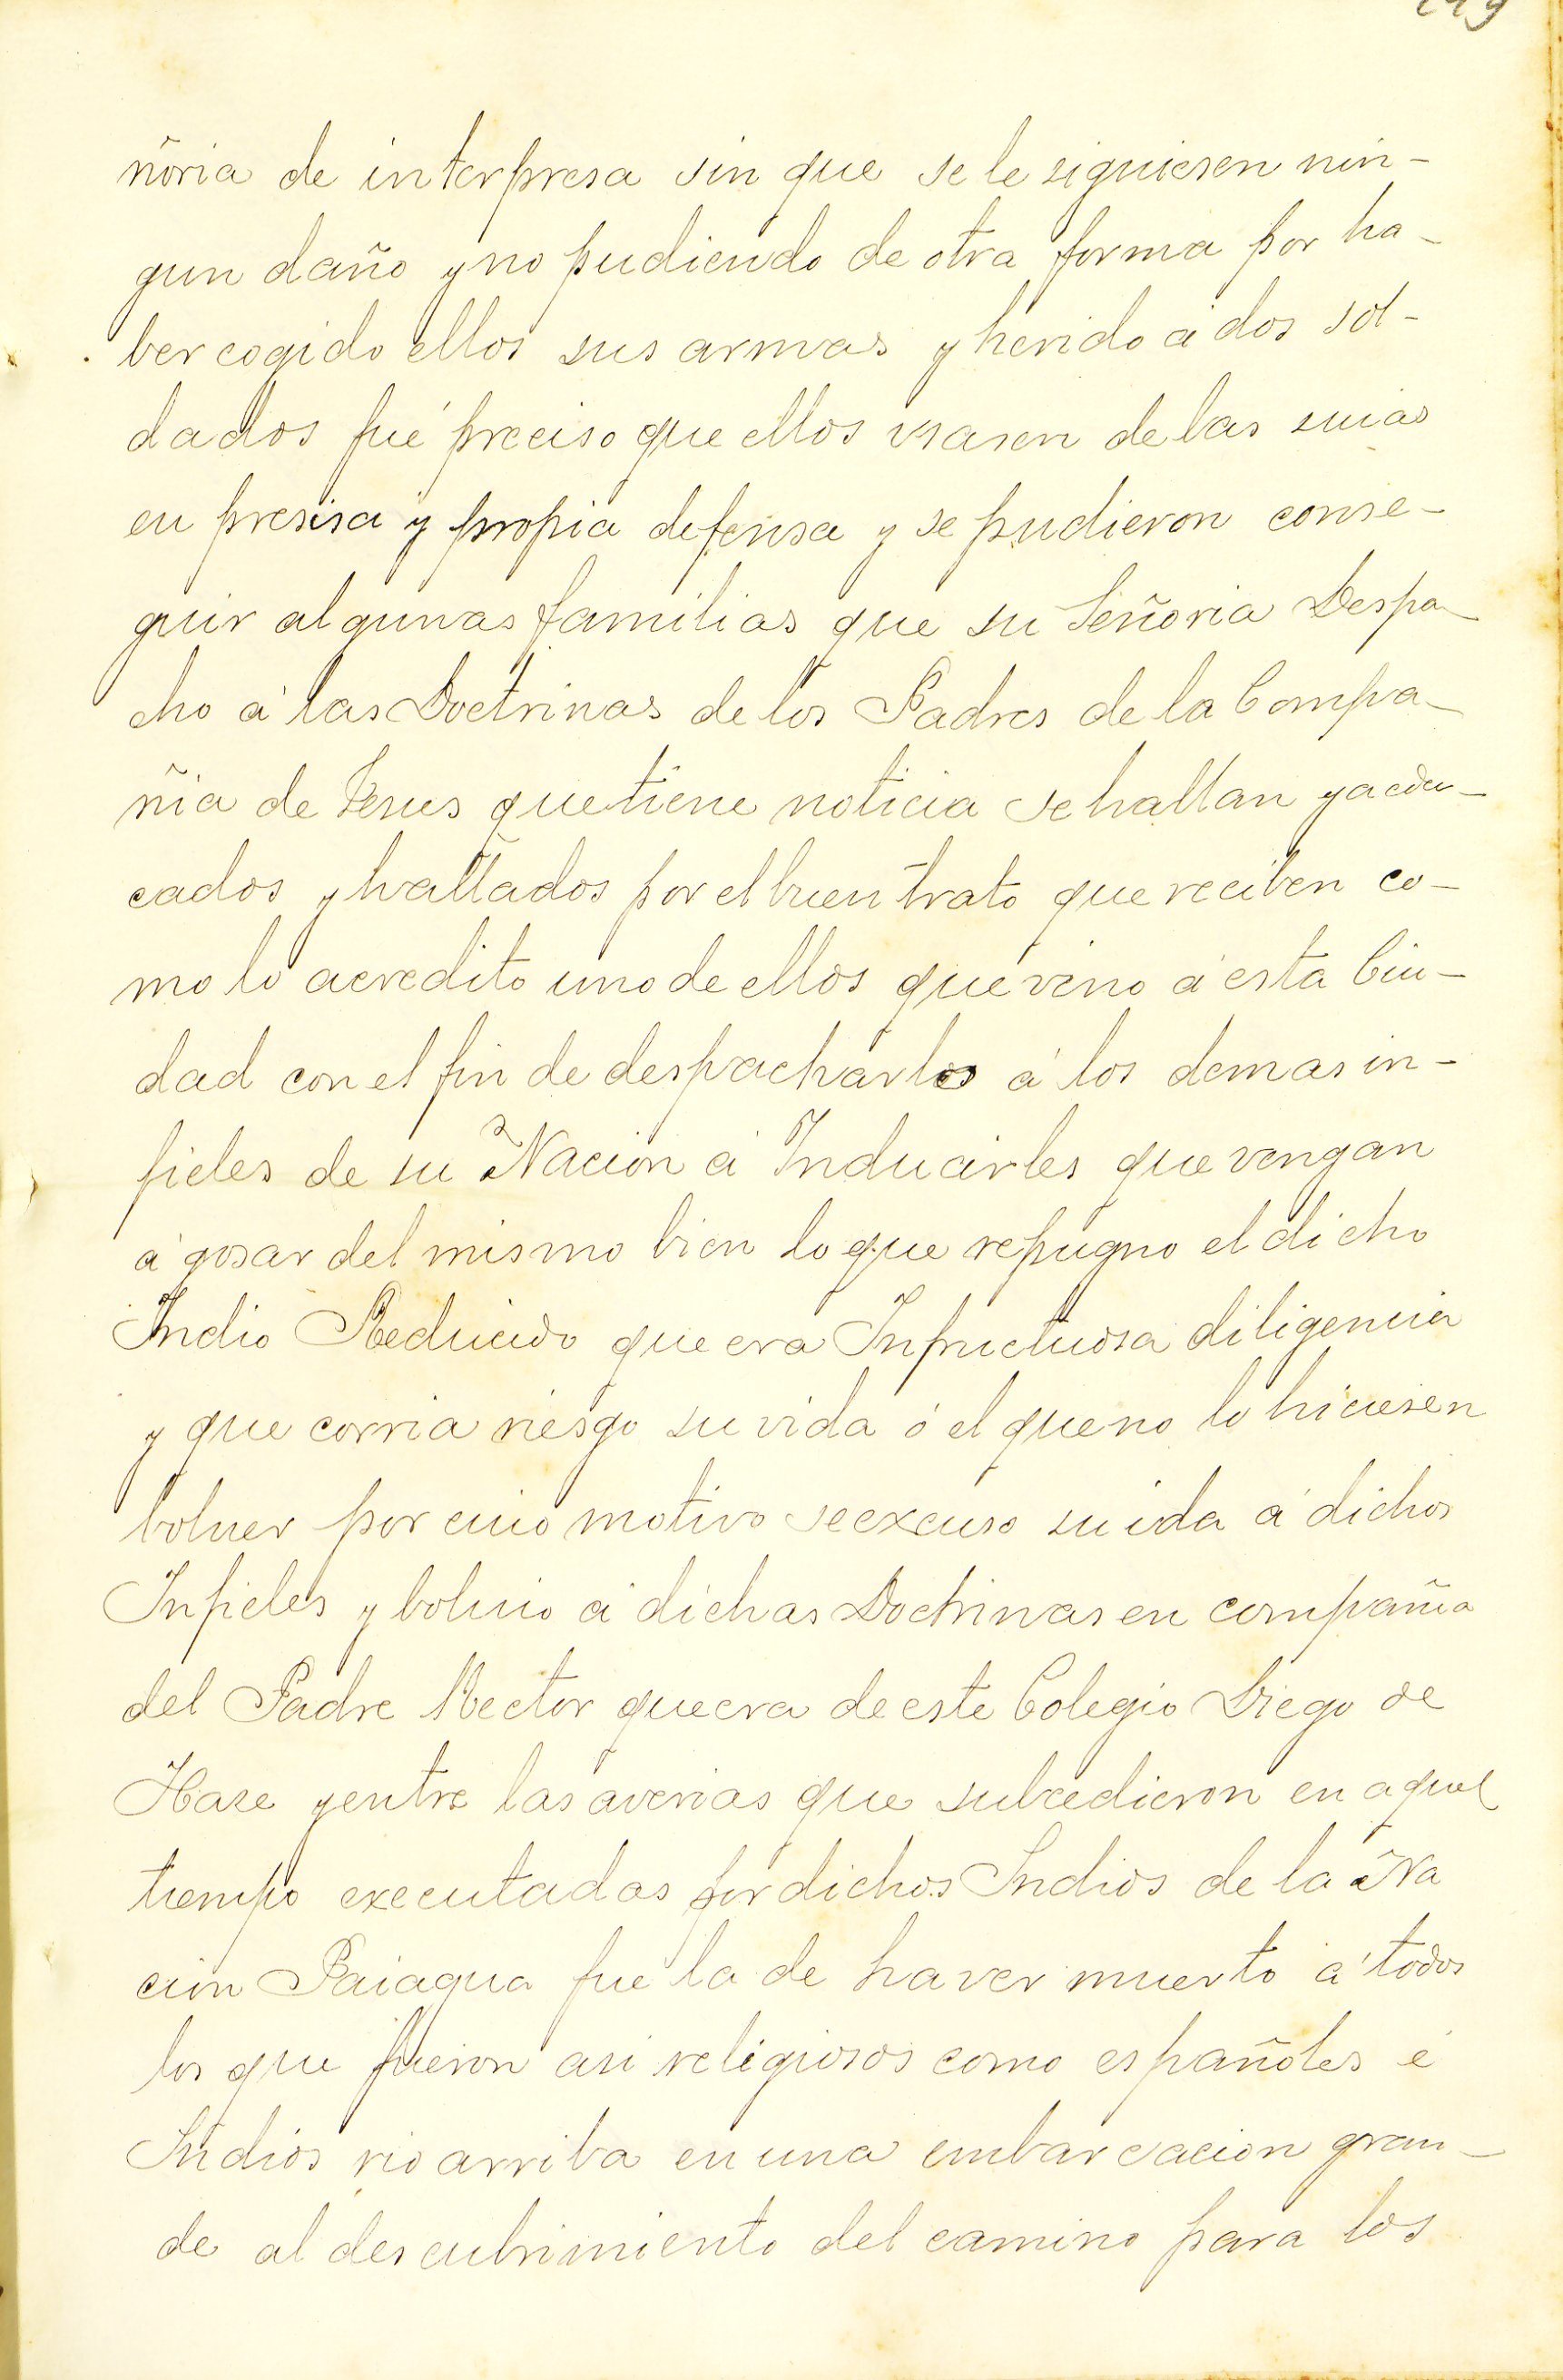 ñoria de interpresa sin que se le siguiesen nin-
gun daño y no pudiendo de otra forma por ha-
ber cogido ellos sus armas y herido á dos sol-
dados fué preciso que ellos usasen de las suias
en presisa y propia defensa y se pudieron conse-
guir algunas familias que su Señoria Despa-
cho á las Doctrinas de los Padres de la Compa-
ñia de Jesus que tiene noticia se hallan ya edu-
cados y hallados por el buen trato que reciben co-
mo lo acredito uno de ellos que vino á esta Ciu-
dad con el fin de despacharlos á los demas in-
fieles de su Nacion á Inducirles que vengan
á gosar del mismo bien lo que repugno el dicho
Indio Reducido que era Infructuosa diligencia
y que corria riesgo su vida ó el que no lo hiciesen
boluer por cuio motivo se excuso su ida á dichos
Infieles y boluio á dichas Doctrinas en compañia
del Padre Rector que era de este Colegio Diego de
Hase y entre las averias que subcedieron en aquel
tiempo executadas por dichos Indios de la Na
cion Paiagua fue la de haver muerto á todos
los que fueron asi religiosos como españoles é
Indios rio arriba en una embarcacion gran-
de al descubrimiento del camino para los